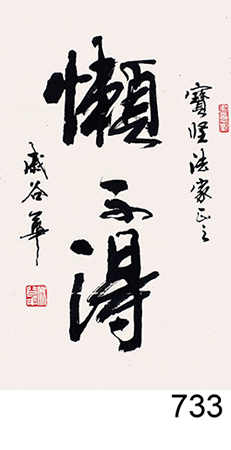 寶煜法家正之
懶不得
戚谷華
733